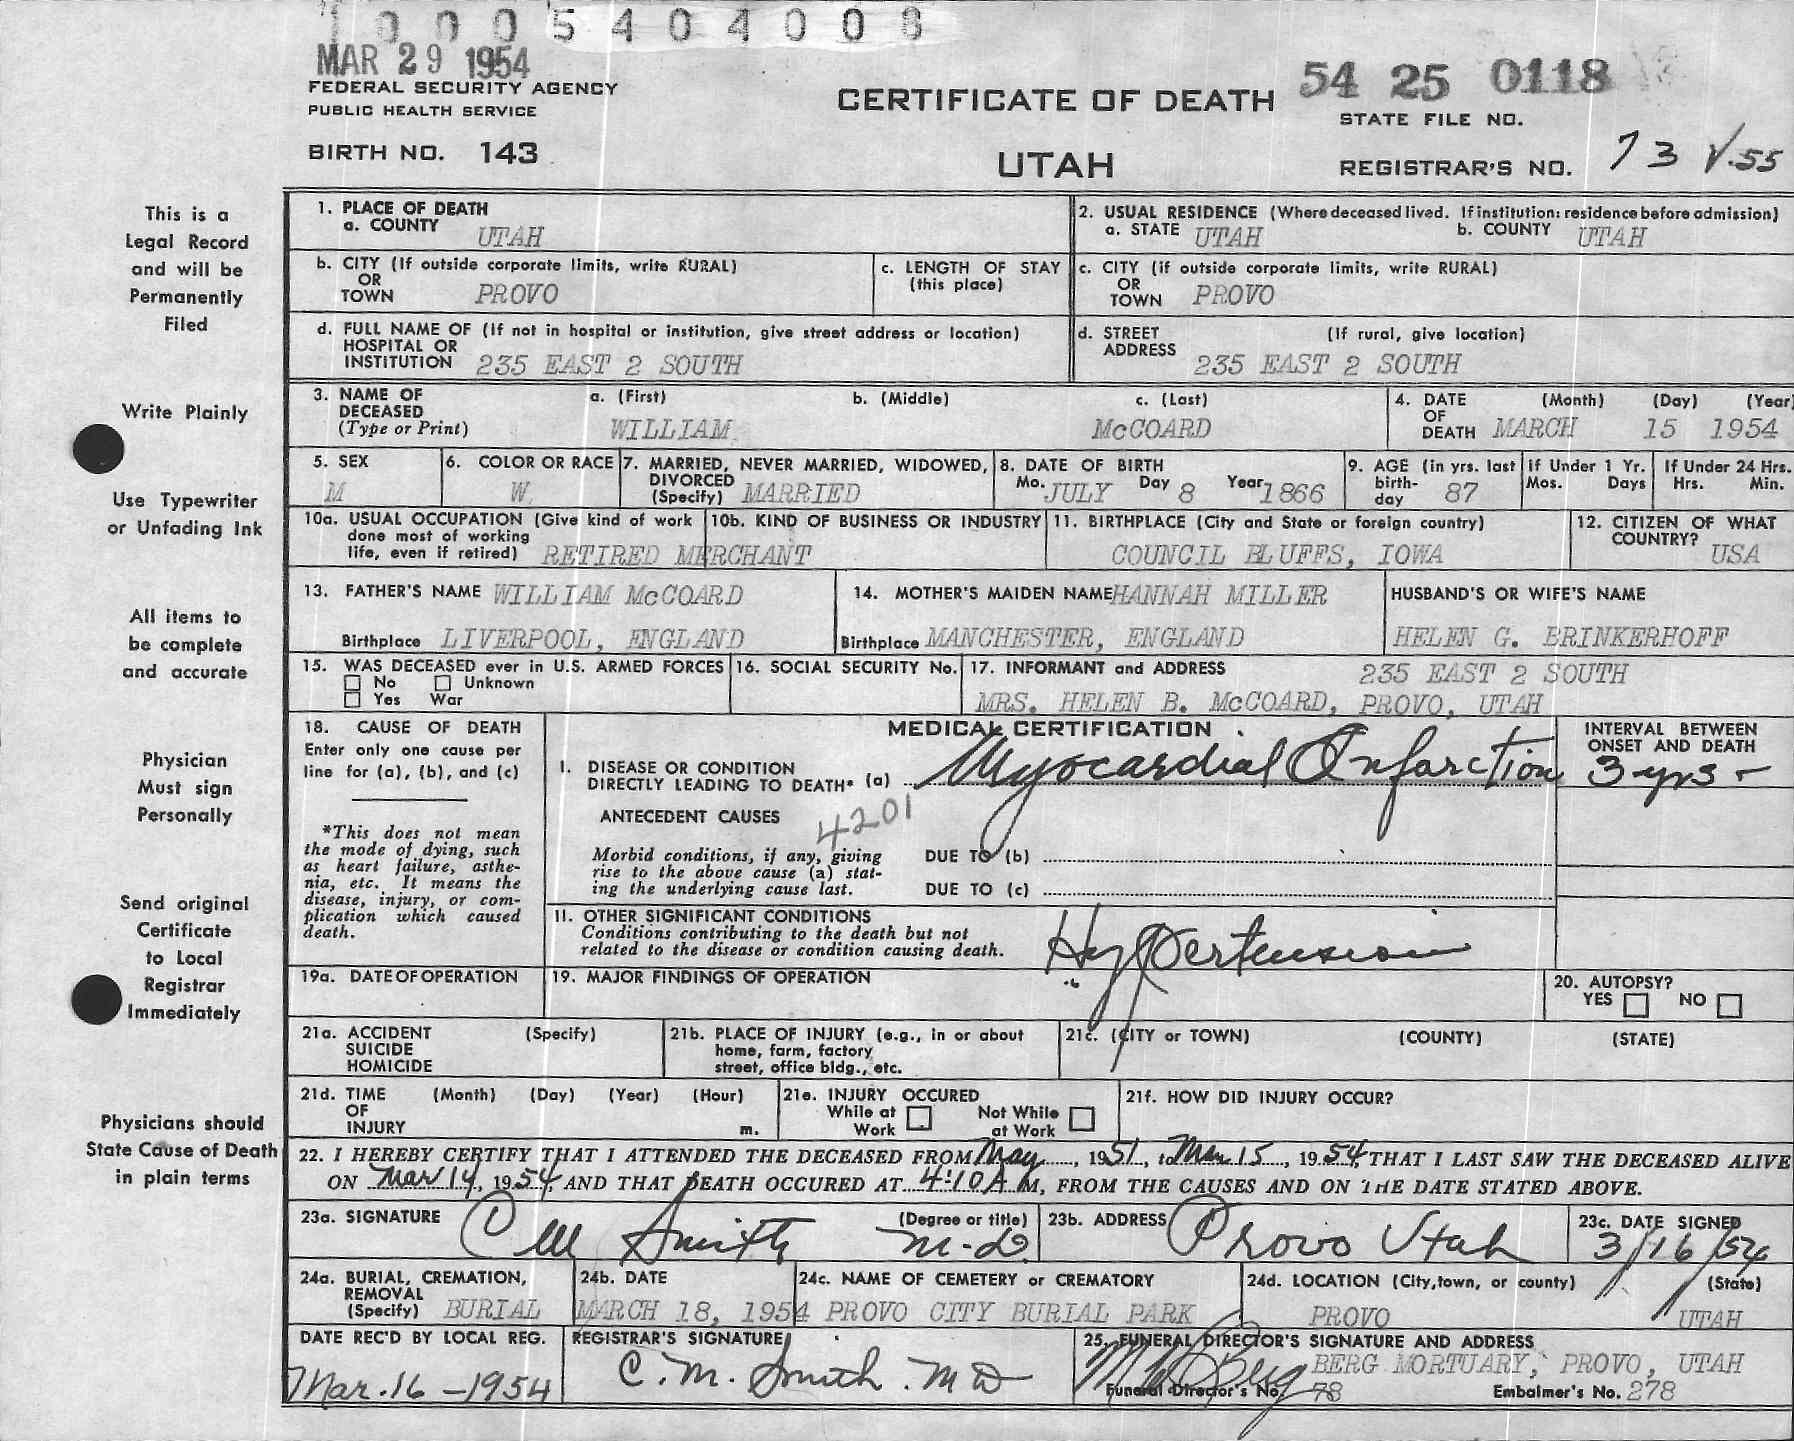 1 0 0 0 5 4 0 4 0 0 8
MAR 29 1954
FEDERAL SECURITY AGENCY
PUBLIC HEALTH SERVICE
BIRTH NO. 143
CERTIFICATE OF DEATH
UTAH
54 25 0118
STATE FILE NO.
REGISTRAR'S NO. 73 V.55
This is a
Legal Record
and will be
Permanently
Filed
Write Plainly
Use Typewriter
or Unfading Ink
All items to
be complete
and accurate
Physician
Must sign
Personally
Send original
Certificate
to Local
Registrar
Immediately
Physicians should
State Cause of Death
in plain terms
1. PLACE OF DEATH
a. COUNTY UTAH
2. USUAL RESIDENCE (Where deceased lived. If institution: residence before admission)
a. STATE UTAH b. COUNTY UTAH
b. CITY (If outside corporate limits, write RURAL)
OR
TOWN PROVO
c. LENGTH OF STAY
(this place)
c. CITY (if outside corporate limits, write RURAL)
OR
TOWN PROVO
d. FULL NAME OF (If not in hospital or institution, give street address or location)
HOSPITAL OR
INSTITUTION 235 EAST 2 SOUTH
d. STREET (If rural, give location)
ADDRESS 235 EAST 2 SOUTH
3. NAME OF a. (First) b. (Middle) c. (Last)
DECEASED
(Type or Print) WILLIAM McCOARD
4. DATE (Month) (Day) (Year)
OF
DEATH MARCH 15 1954
5. SEX
M
6. COLOR OR RACE
W.
7. MARRIED, NEVER MARRIED, WIDOWED,
DIVORCED
(Specify) MARRIED
8. DATE OF BIRTH
Mo. JULY Day 8 Year 1866
9. AGE (in yrs. last
birth-
day 87
If Under 1 Yr.
Mos. Days
If Under 24 Hrs.
Hrs. Min.
10a. USUAL OCCUPATION (Give kind of work
done most of working
life, even if retired) RETIRED MERCHANT
10b. KIND OF BUSINESS OR INDUSTRY
11. BIRTHPLACE (City and State or foreign country)
COUNCIL BLUFFS, IOWA
12. CITIZEN OF WHAT
COUNTRY?
USA
13. FATHER'S NAME WILLIAM McCOARD
Birthplace LIVERPOOL, ENGLAND
14. MOTHER'S MAIDEN NAME HANNAH MILLER
Birthplace MANCHESTER, ENGLAND
HUSBAND'S OR WIFE'S NAME
HELEN G. BRINKERHOFF
15. WAS DECEASED ever in U.S. ARMED FORCES
No Unknown
Yes War
16. SOCIAL SECURITY No.
17. INFORMANT and ADDRESS 235 EAST 2 SOUTH
MRS. HELEN B. McCOARD, PROVO, UTAH
18. CAUSE OF DEATH
Enter only one cause per
line for (a), (b), and (c)
*This does not mean
the mode of dying, such
as heart failure, asthe-
nia, etc. It means the
disease, injury, or com-
plication which caused
death.
MEDICAL CERTIFICATION
I. DISEASE OR CONDITION
DIRECTLY LEADING TO DEATH* (a) Myocardial Infarction
INTERVAL BETWEEN
ONSET AND DEATH
3 yrs -
ANTECEDENT CAUSES 4201
Morbid conditions, if any, giving
rise to the above cause (a) stat-
ing the underlying cause last.
DUE TO (b)
DUE TO (c)
II. OTHER SIGNIFICANT CONDITIONS
Conditions contributing to the death but not
related to the disease or condition causing death. Hypertension
19a. DATE OF OPERATION
19. MAJOR FINDINGS OF OPERATION
20. AUTOPSY?
YES NO
21a. ACCIDENT (Specify)
SUICIDE
HOMICIDE
21b. PLACE OF INJURY (e.g., in or about
home, farm, factory
street, office bldg., etc.
21c. (CITY or TOWN) (COUNTY) (STATE)
21d. TIME (Month) (Day) (Year) (Hour)
OF
INJURY m.
21e. INJURY OCCURED
While at Not While
Work at Work
21f. HOW DID INJURY OCCUR?
22. I HEREBY CERTIFY THAT I ATTENDED THE DECEASED FROM May, 1951, to Mar 15, 1954, THAT I LAST SAW THE DECEASED ALIVE
ON Mar 14, 1954, AND THAT DEATH OCCURED AT 4:10 A M, FROM THE CAUSES AND ON THE DATE STATED ABOVE.
23a. SIGNATURE (Degree or title)
C M Smith M-D
23b. ADDRESS
Provo Utah
23c. DATE SIGNED
3/16/54
24a. BURIAL, CREMATION,
REMOVAL
(Specify) BURIAL
24b. DATE
MARCH 18, 1954
24c. NAME OF CEMETERY or CREMATORY
PROVO CITY BURIAL PARK
24d. LOCATION (City,town, or county) (State)
PROVO UTAH
DATE REC'D BY LOCAL REG.
Mar. 16 - 1954
REGISTRAR'S SIGNATURE
C. M. Smith. M D
25. FUNERAL DIRECTOR'S SIGNATURE AND ADDRESS
Berg BERG MORTUARY, PROVO, UTAH
Funeral Director's No. 78 Embalmer's No. 278